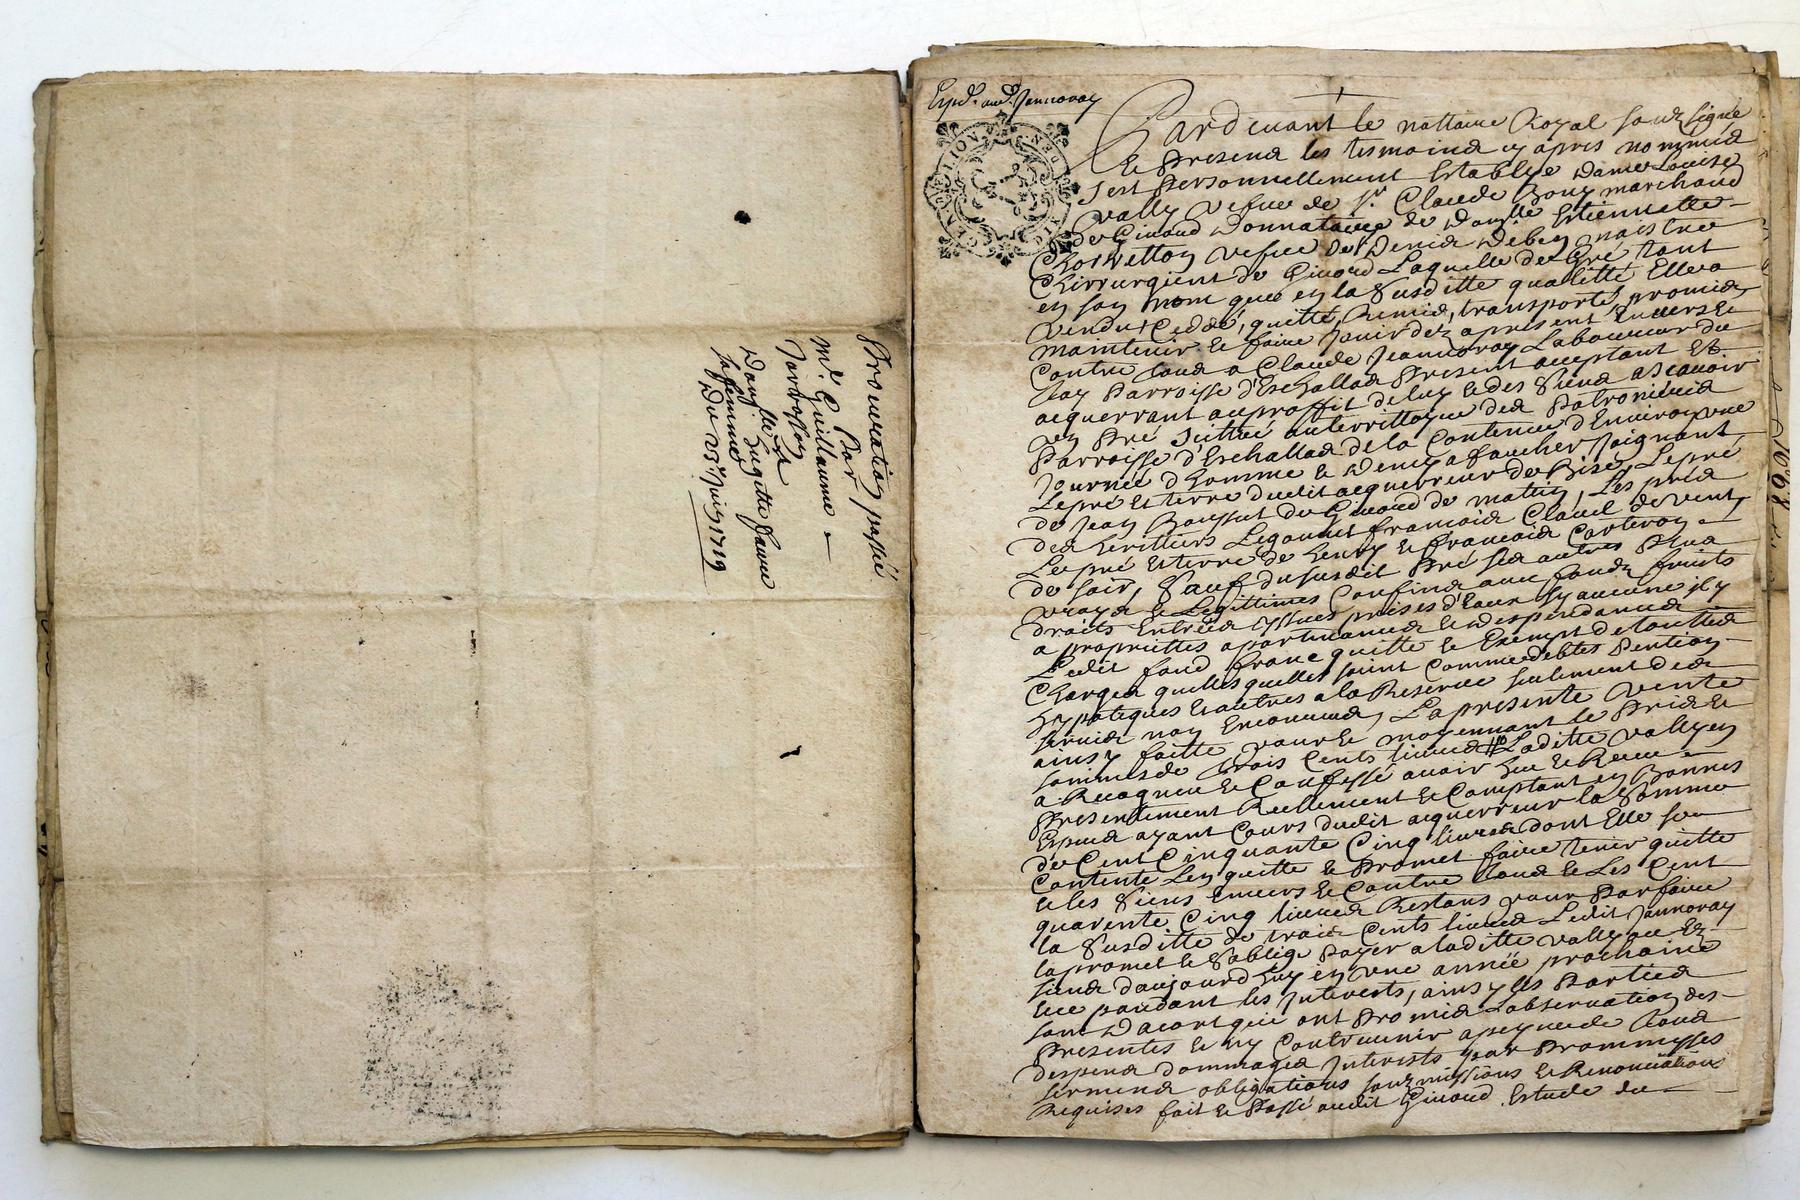 Procuration passée
par
md. Guillaume
Dam.lle Hugette faure
sa femme
Du 23e Juin 1719
Expd. aud. Jannoray
GENERALITE DE LION
Pardevant le nottaire Royal soubzsigné
et Presend les tesmoind cy apres nommed
sest Personnellement Establye dame Louise
vally vefue de sr. Claude Bouy marchand
de Giuord donnataire de dam.lle Estiennette
vefue de sr. Denid maistre
Chirrurgient de Giuord Laquelle de Gré tant
en son nom que en la Susditte qualitté Ellea
vendu, Ceddé, quitté, Remid, transporté, promid
maintenir et faire Jouir dez apresent Enuers et
Contre toud a Claude Jeannoray Laboureur du
Parroisse d'Eschallad Present acceptant Et
acquerrant au proffit de luy et des Siend ascauoir
un Pré Scittué au territtoyre ded
Parroisse d'Eschallad de la Contenue d'Enuiron une
Journée d'homme et demy a faucher Joignant
Lepré et terre dudit acquerreur de Bize, Le pré
de Jean de Giuord de matin, Les préd
ded heritiers francoid de vent,
Le pré et terre de henry et francoid
de soir, Sauf du susdit Pré sed autres plud
vrayd et Legittimes Confind auec fondz fruits
droits Entréed yssues prises d'Eaux sy aucune il y
a proprietés apartenanced et despendanced
Ledit fond franc quitte et Exempt de toutted
Charged quelles quelles soint Comme debtes Pention
hypoteques et autres a la Reserue seulement ded
seruid noy Encourud, La presente vente
ainsy faitte pour et moyennant le Prid et
somme de trois Cents liured Laditte vally en
a Recogneu et Confessé auoir heu et Receu
Presentement Reellement et Comptant en Bonnes
Esped ayant Cours dudit acquerreur la Somme
de Cent Cinquante Cinq liured dont Elle se
Contente Len quitte et Promet faire tenir quitte
et les Siens Enuers et Contre toud et Les Cent
quarente Cinq liured Restans pour Parfaire
la Susditte de trois Cents liured Ledit Jannoray
la promet et S'oblige Payer a laditte vally ou Es
siend daujourdhuy en une année prochaine
et ce pandant les Interests, ainsy les Partied
sont Dacort qui ont Promid Lobseruation des
Presentes et ny Contreuenir a peyne de toud
despend dommaged Interests par Prommesses
sermend obligations soubzmissions et Renonciations
Requises fait et Passé audit Giuord Estude du